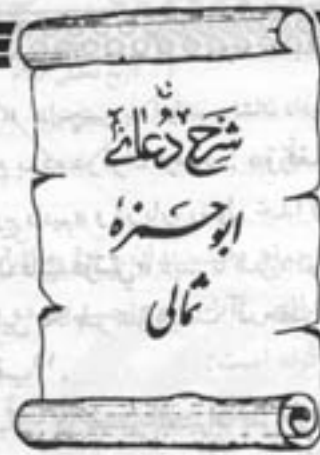 شرح دُعائے
ابوحمزہ
ثمالی